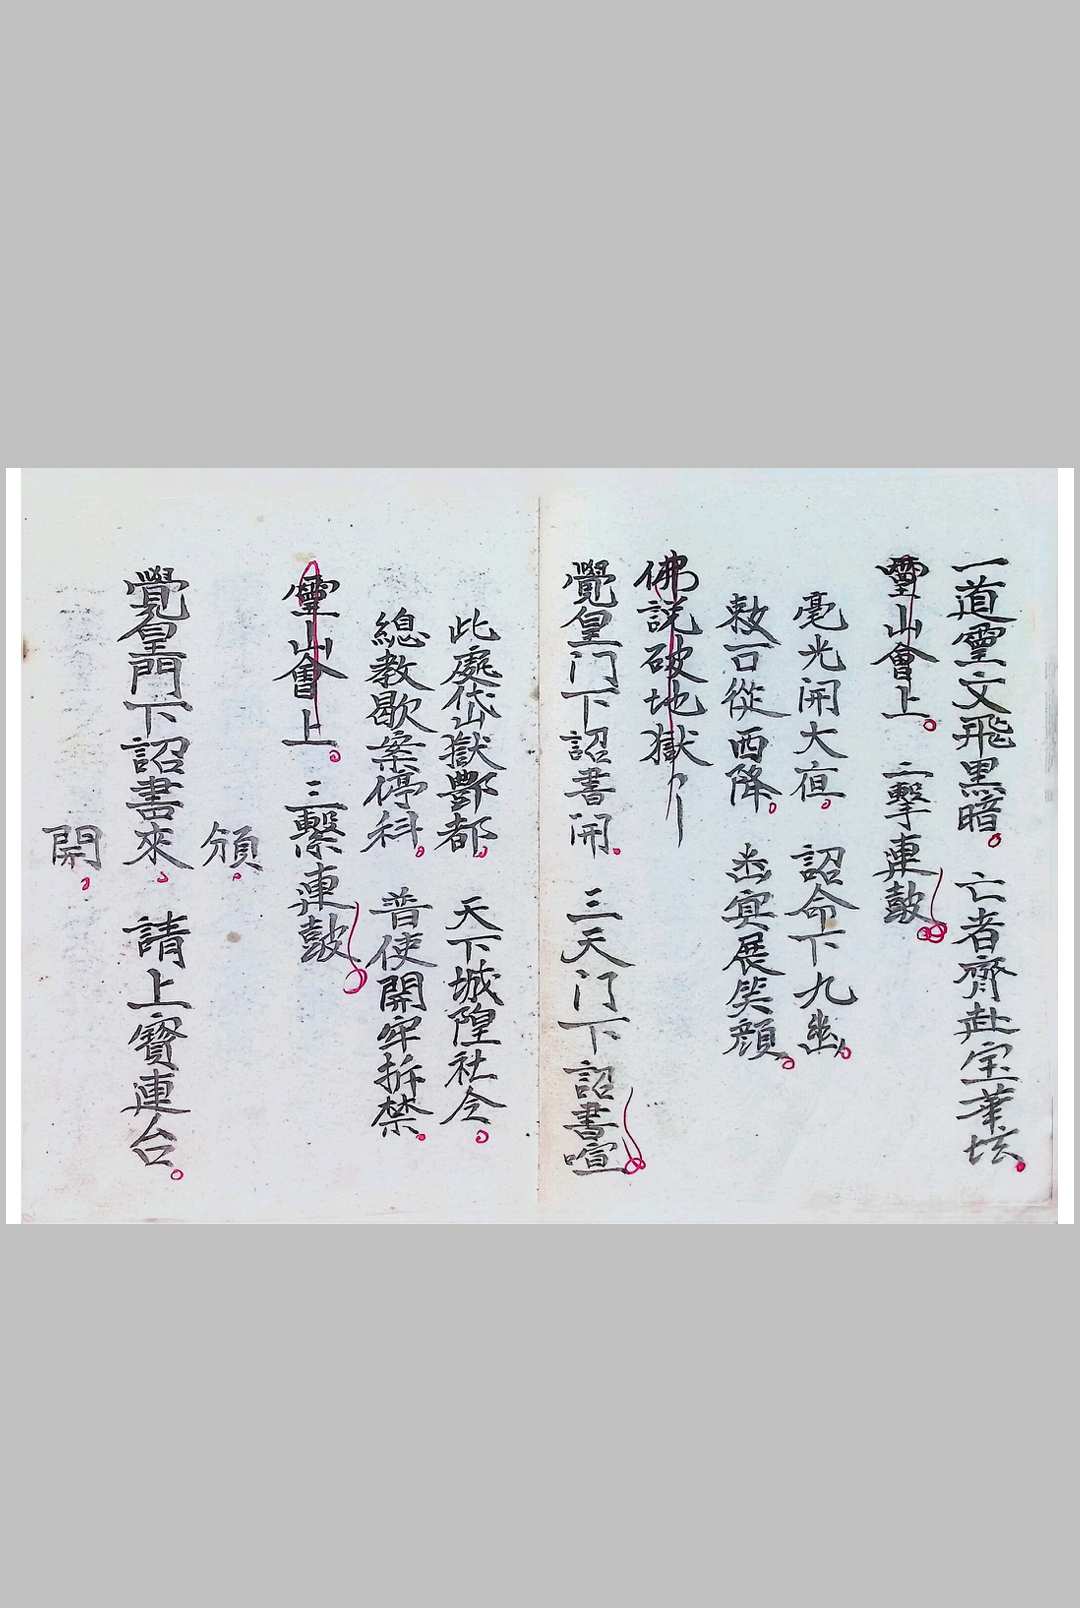 一道靈文飛黑暗 亡者齊赴宝華坛
靈山會上 二擊連鼓
毫光開大夜 詔命下九幽
敕召從西降 幽冥展笑顔
佛説破地獄
覺皇门下詔書開 三天门下詔書喧
此處岱嶽酆都 天下城隍社令
總教歇案停科 普使開牢拆禁
靈山會上 三繫連鼓
頒
覺皇門下詔書來 請上寶連台
開